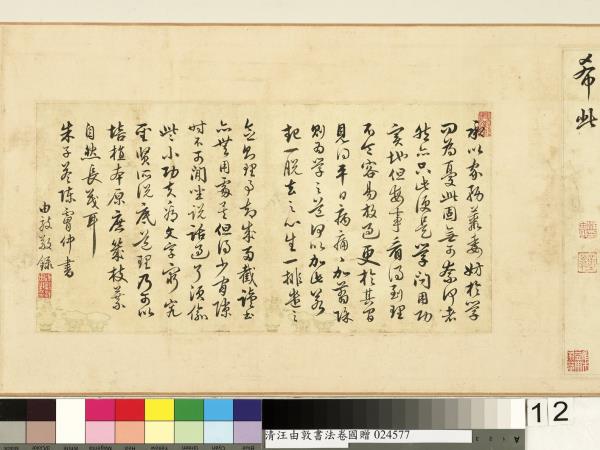 希此
承以家務叢委妨於學
問為憂此固無可奈何者
然亦只此便是學問用功
實地但每事看得到理
不令容易放過更於其間
見得平日病痛痛加翦除
則為學之道何以加此若
起一脫去之心生一排遣之
念則理事却成兩截讀書
亦無用處矣但得少有隙
時不可閒坐說話過了須偷
些小功夫看文字窮究
聖賢所說底道理乃可以
培植本原庶幾枝葉
自然長茂耳
朱子答陳膚仲書
由敦敬錄
清汪由敦書法卷國贈 024577
12